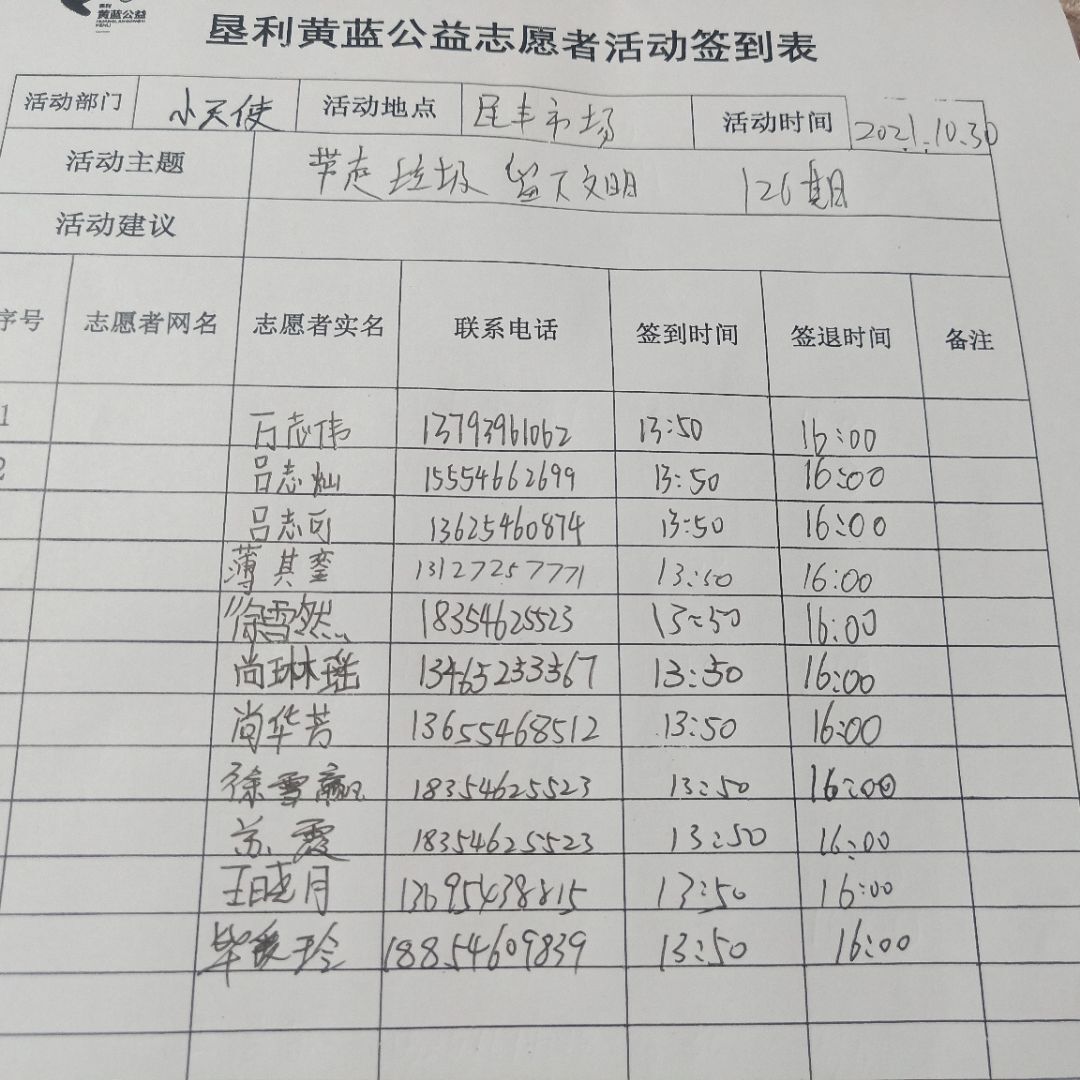 黄蓝公益
垦利黄蓝公益志愿者活动签到表
活动部门 小天使 活动地点 民丰市场 活动时间 2021.10.30
活动主题 带走垃圾 留下文明 126期
活动建议
序号 志愿者网名 志愿者实名 联系电话 签到时间 签退时间 备注
1 万志伟 13793961062 13:50 16:00
2 吕志灿 15554662699 13:50 16:00
吕志可 13625460874 13:50 16:00
薄其銮 13127257771 13:50 16:00
徐雪然 18354625523 13:50 16:00
尚琳瑶 13465233367 13:50 16:00
尚华芳 13655468512 13:50 16:00
徐雪赢 18354625523 13:50 16:00
苏霞 18354625523 13:50 16:00
王晓月 13695438815 13:50 16:00
毕 玲 18854609839 13:50 16:00